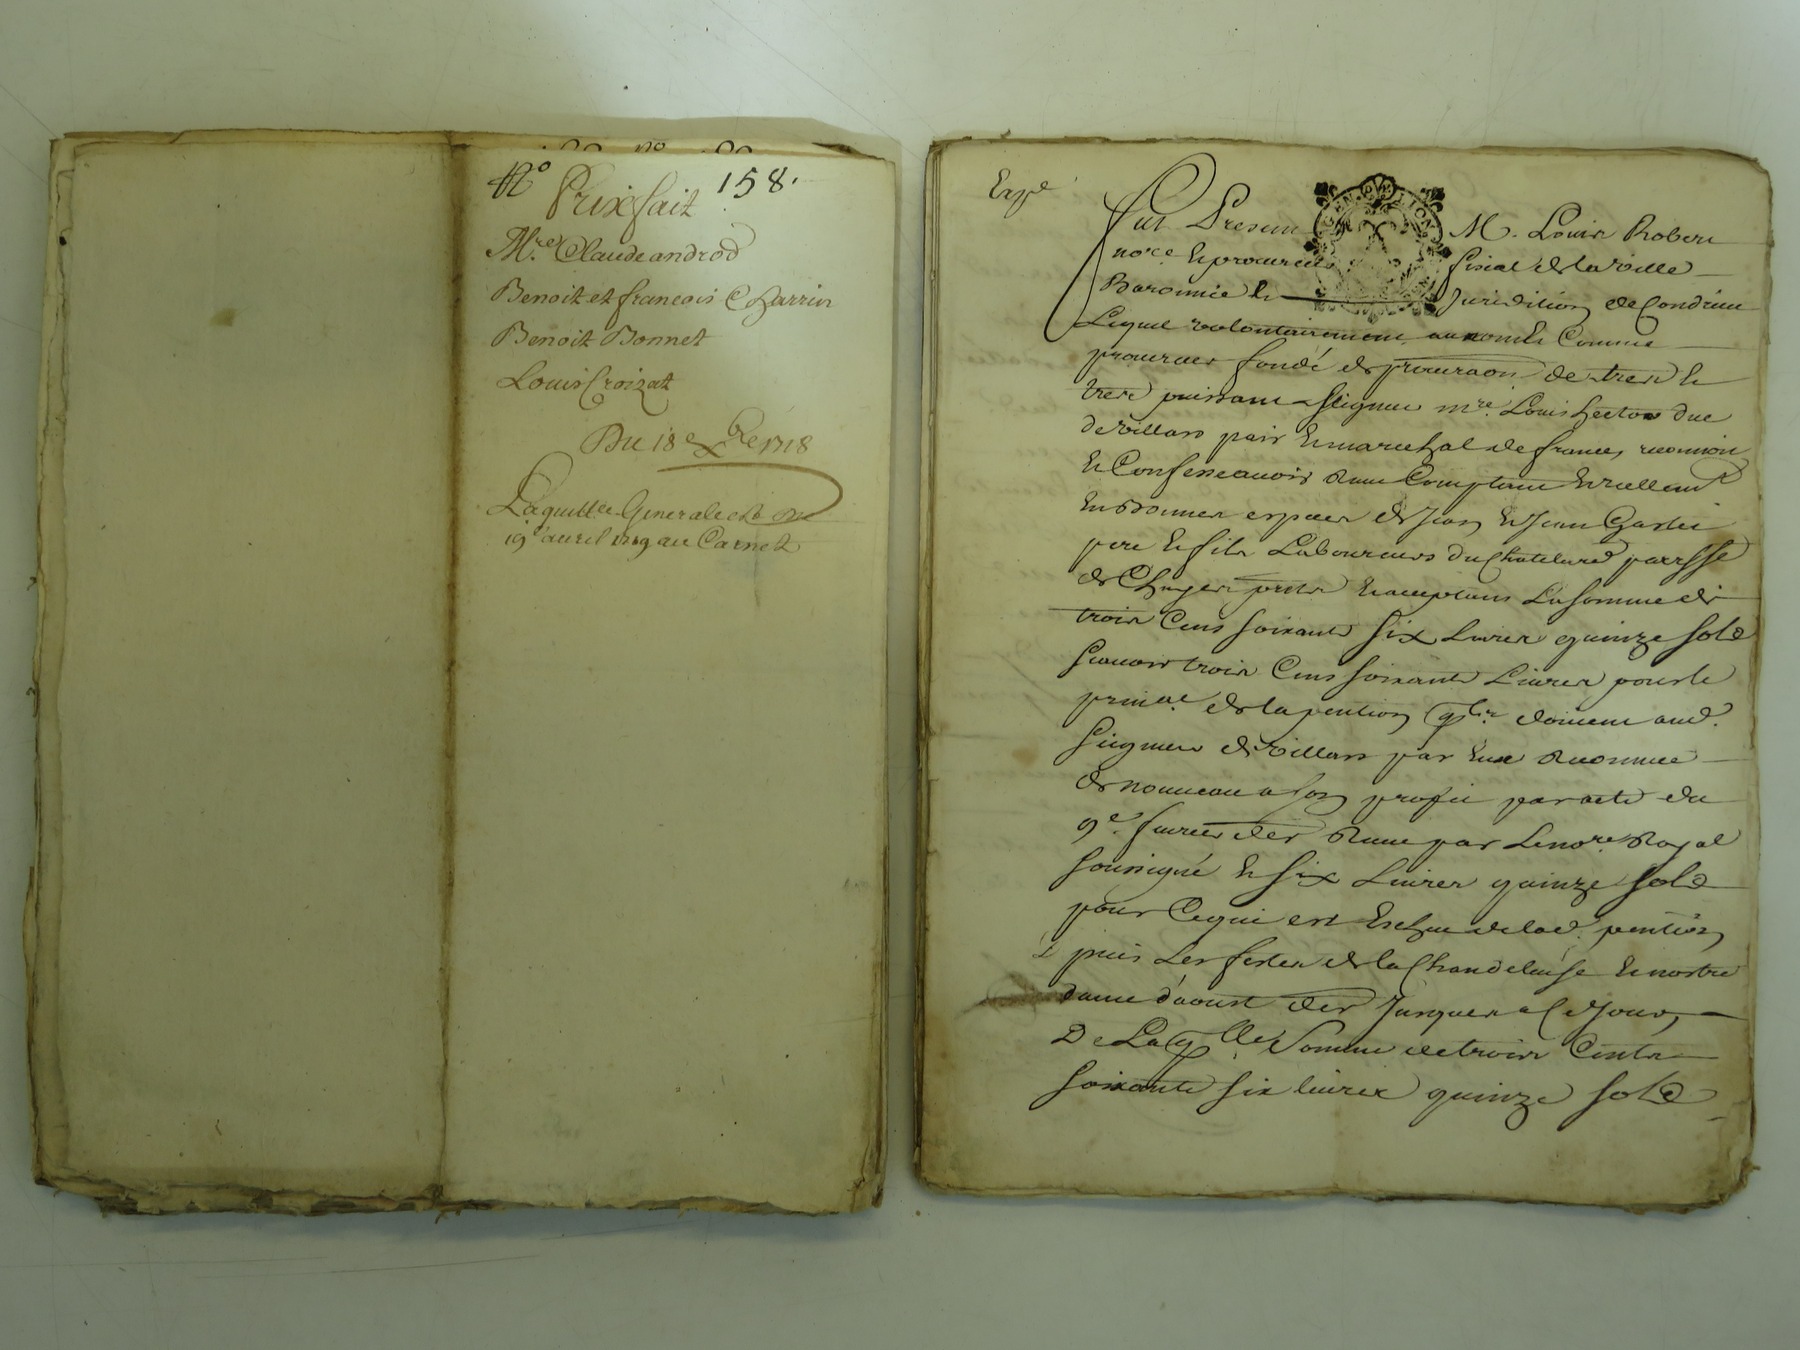 No 158.
Prixfait
Mre Claude androd
Benoit et francois Charrin
Benoit Bonnet
Louis Croizat
Du 18e Xbre 1718
La quittce Generale est du
19e auril 1719 au Carnet
Expé
fut Present M. Louis Robert
nore & procureur fiscal de la ville
Baronnie & Juridition de Condrieu
Lequel volontairement au nom & Comme
procureur fondé de procuraon de tres &
tres puissant seigneur mre Louis hector duc
de villars pair & marechal de france, reconnoit
& Confesse auoir Receu Comptant &
de Jean & Jean
pere & fils Laboureurs du Chatelard parrsse
de & acceptans La somme de
trois Cens soixante six Liures quinze sols
scauoir trois Cens soixante Liures pour le
prinal de la pention qlz doiuent aud.
seigneur de villars par Eux Reconnue
de nouueau a son profit par acte du
9e feurier der Receu par Le nore Royal
soussigné & six Liures quinze sols
pour Ce qui est Escheu de lad. pention
puis Les festes de la Chandeleuse & nostre
dame d'aoust der Jusques a Ce Jour,
De Laqlle Somme de trois Cents
soixante six liures quinze sols